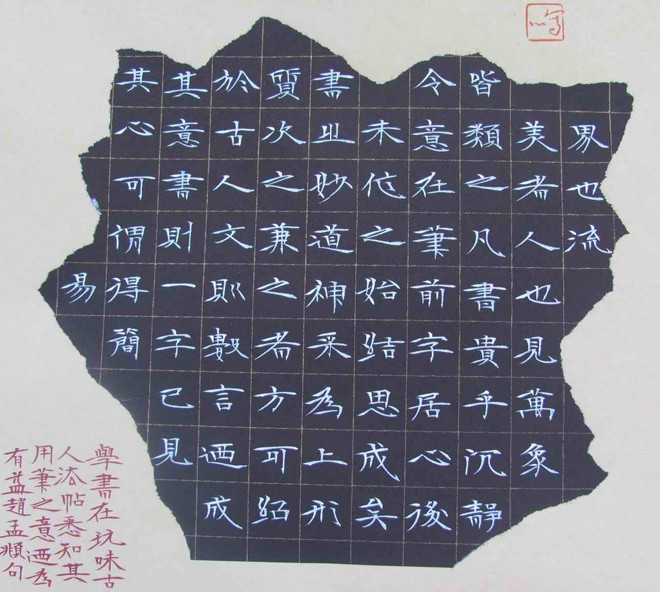 界也流
美者人也見萬象
皆類之凡書貴乎沉靜
令意在筆前字居心後
未作之始結思成矣
書之妙道神采為上形
質次之兼之者方可紹
於古人文則數言迺成
其意書則一字已見
其心可謂得簡
易
學書在玩味古
人法帖悉知其
用筆之意迺為
有益趙孟頫句